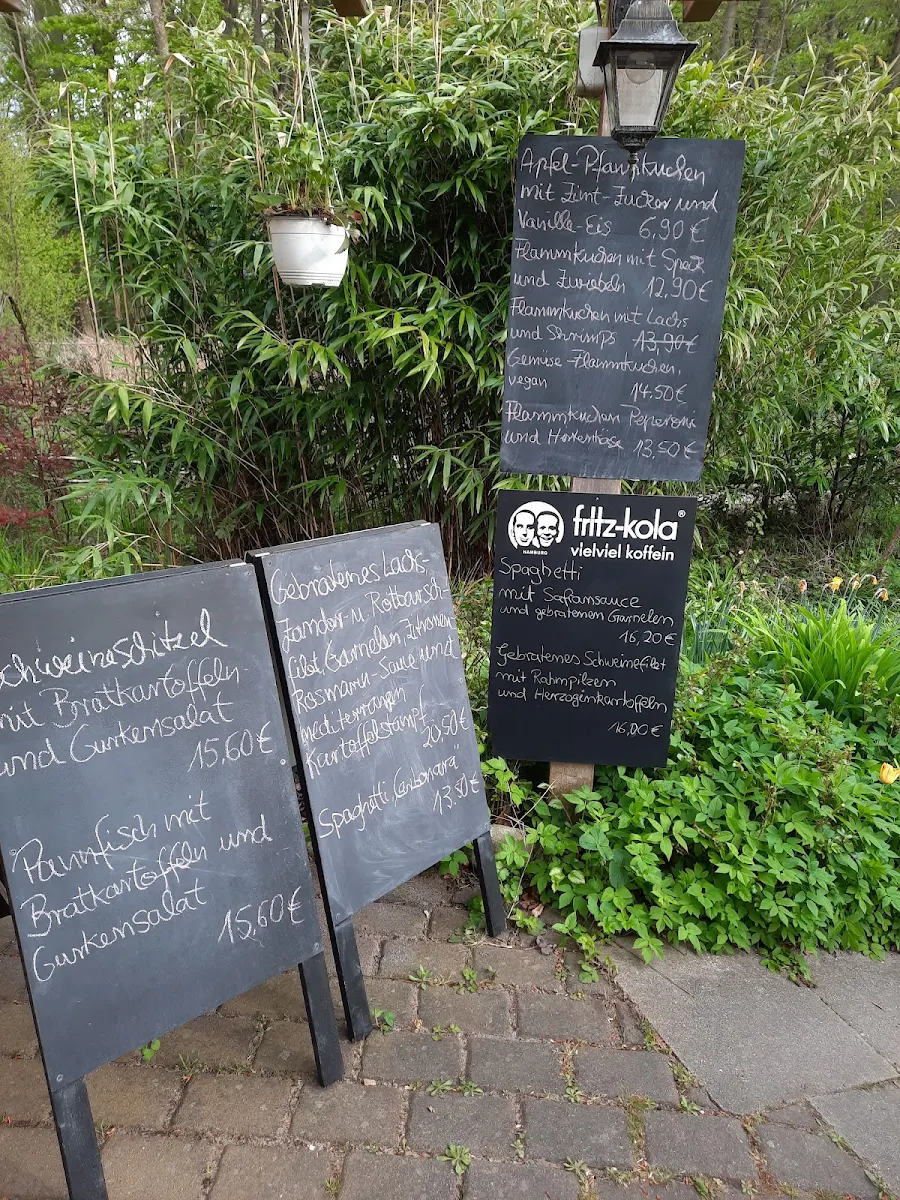 Schweineschitzel
mit Bratkartoffeln
und Gurkensalat
15,60€
Pannfisch mit
Bratkartoffeln und
Gurkensalat 15,60€
Gebratenes Lachs-
Zander- u. Rotbarsch-
filet, Garnelen Zitronen
Rosmarin-Sauce und
mediterranen
Kartoffelstampf
20,50€
Spaghetti „Carbonara"
13.50€
Apfel-Pfannkuchen
mit Zimt-Zucker und
Vanille-Eis 6,90€
Flammkuchen mit Speck
und Zwiebeln 12,90€
Flammkuchen mit Lachs
und Shrimps 13,90€
Gemüse-Flammkuchen,
vegan 14.50€
Flammkuchen Peperoni
und Hirtenkäse 13,50€
HAMBURG
fritz-kola®
vielviel koffein
Spaghetti
mit Safransauce
und gebratenen Garnelen
16,20€
Gebratenes Schweinefilet
mit Rahmpilzen
und Herzoginkartoffeln
16,00€